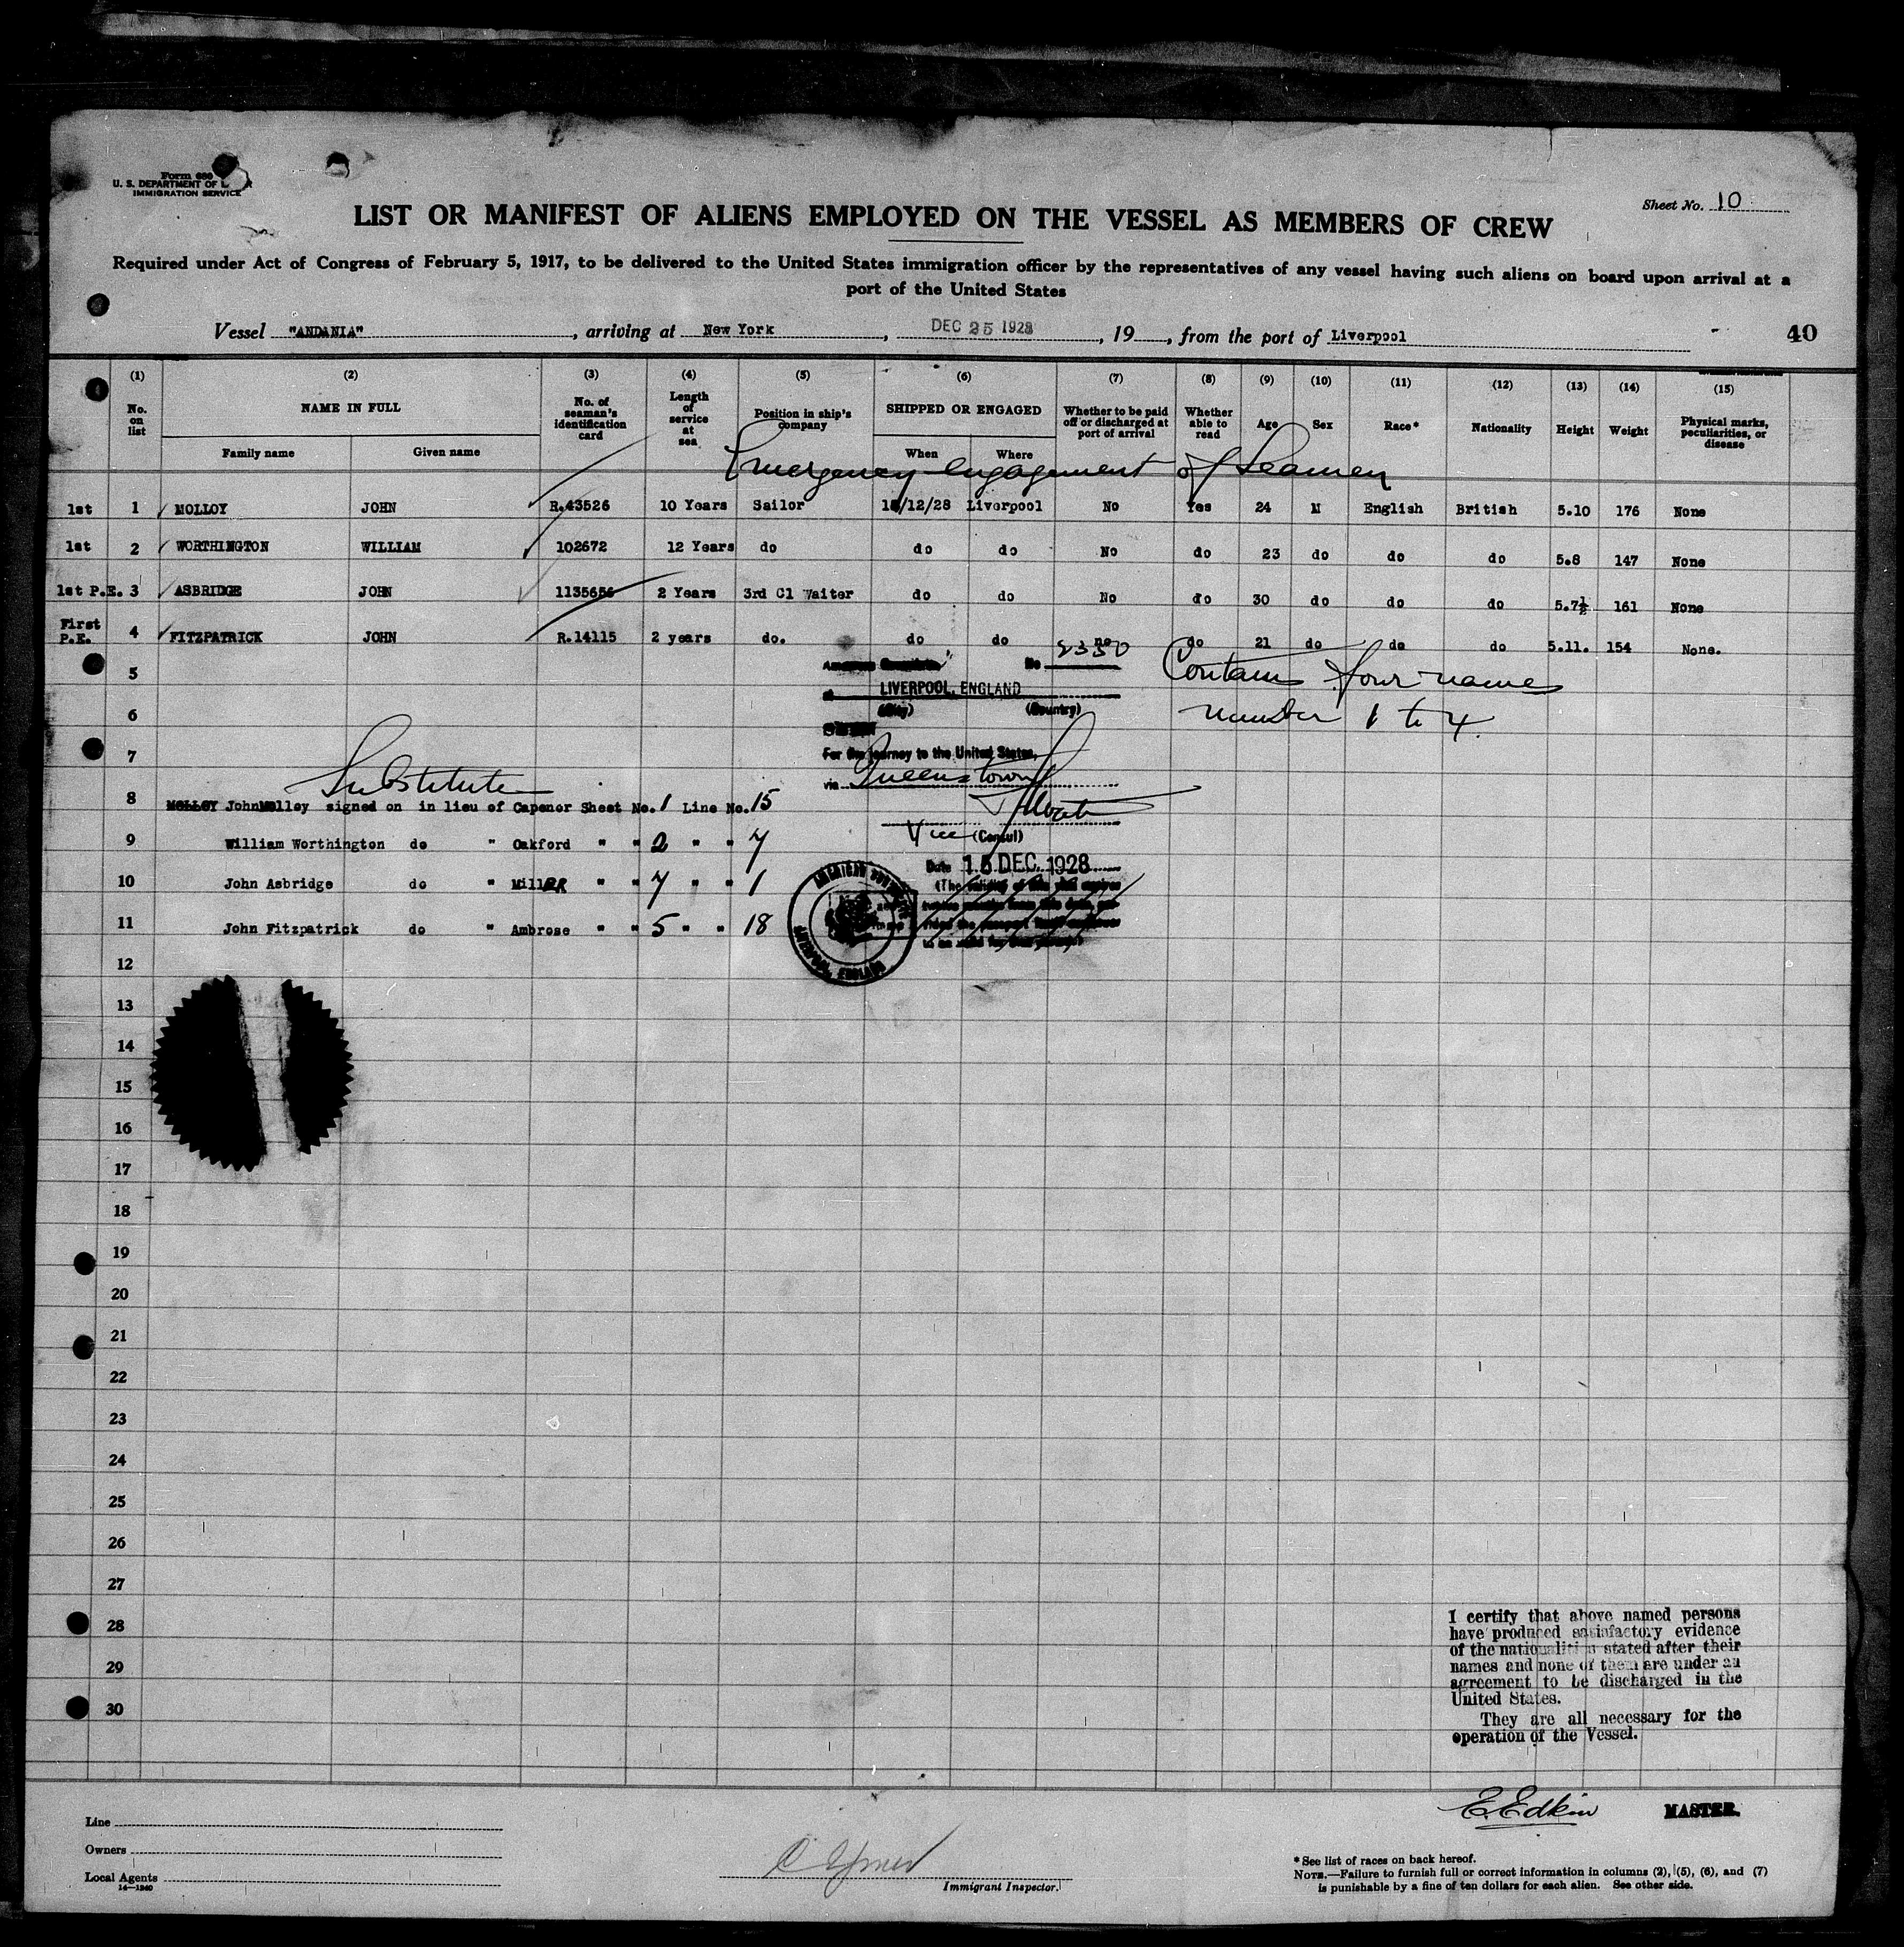 Form 680
U. S. DEPARTMENT OF
IMMIGRATION SERVICE
Sheet No. 10
LIST OR MANIFEST OF ALIENS EMPLOYED ON THE VESSEL AS MEMBERS OF CREW
Required under Act of Congress of February 5, 1917, to be delivered to the United States immigration officer by the representatives of any vessel having such aliens on board upon arrival at a
port of the United States
Vessel "ANDANIA", arriving at New York, DEC 25 1928, 19, from the port of Liverpool
40
(1) (2) (3) (4) (5) (6) (7) (8) (9) (10) (11) (12) (13) (14) (15)
No. on list NAME IN FULL No. of seaman's identification card Length of service at sea Position in ship's company SHIPPED OR ENGAGED Whether to be paid off or discharged at port of arrival Whether able to read Age Sex Race* Nationality Height Weight Physical marks, peculiarities, or disease
Family name Given name When Where
Emergency engagement of Seamen
1st 1 MOLLOY JOHN R.43526 10 Years Sailor 15/12/28 Liverpool No Yes 24 M English British 5.10 176 None
1st 2 WORTHINGTON WILLIAM 102672 12 Years do do do No do 23 do do do 5.8 147 None
1st P.E. 3 ASBRIDGE JOHN 1135656 2 Years 3rd Cl Waiter do do No do 30 do do do 5.7½ 161 None
First P.E. 4 FITZPATRICK JOHN R.14115 2 years do. do do no do 21 do do do 5.11. 154 None.
No 2330
5
LIVERPOOL, ENGLAND
(City) (Country)
Contains four names
number 1 to 4.
6
7
For the journey to the United States,
via Queenstown
Substitute
8 MOLLOY John Molloy signed on in lieu of Capenor Sheet No. 1 Line No. 15
Vice (Consul)
9 William Worthington do " Oakford " " 2 " " 7
Date 15 DEC. 1928
10 John Asbridge do " MillER " " 7 " " 1
11 John Fitzpatrick do " Ambrose " " 5 " " 18
LIVERPOOL, ENGLAND
12
13
14
15
16
17
18
19
20
21
22
23
24
25
26
27
28
29
30
I certify that above named persons
have produced satisfactory evidence
of the nationalities stated after their
names and none of them are under an
agreement to be discharged in the
United States.
They are all necessary for the
operation of the Vessel.
E. Edkin MASTER.
Line
Owners
Local Agents
14—1240
Immigrant Inspector.
* See list of races on back hereof.
NOTE.—Failure to furnish full or correct information in columns (2), (5), (6), and (7)
is punishable by a fine of ten dollars for each alien. See other side.